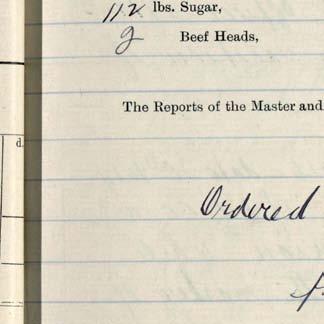 112 lbs. Sugar,
9 Beef Heads,
The Reports of the Master and
d.
Ordered